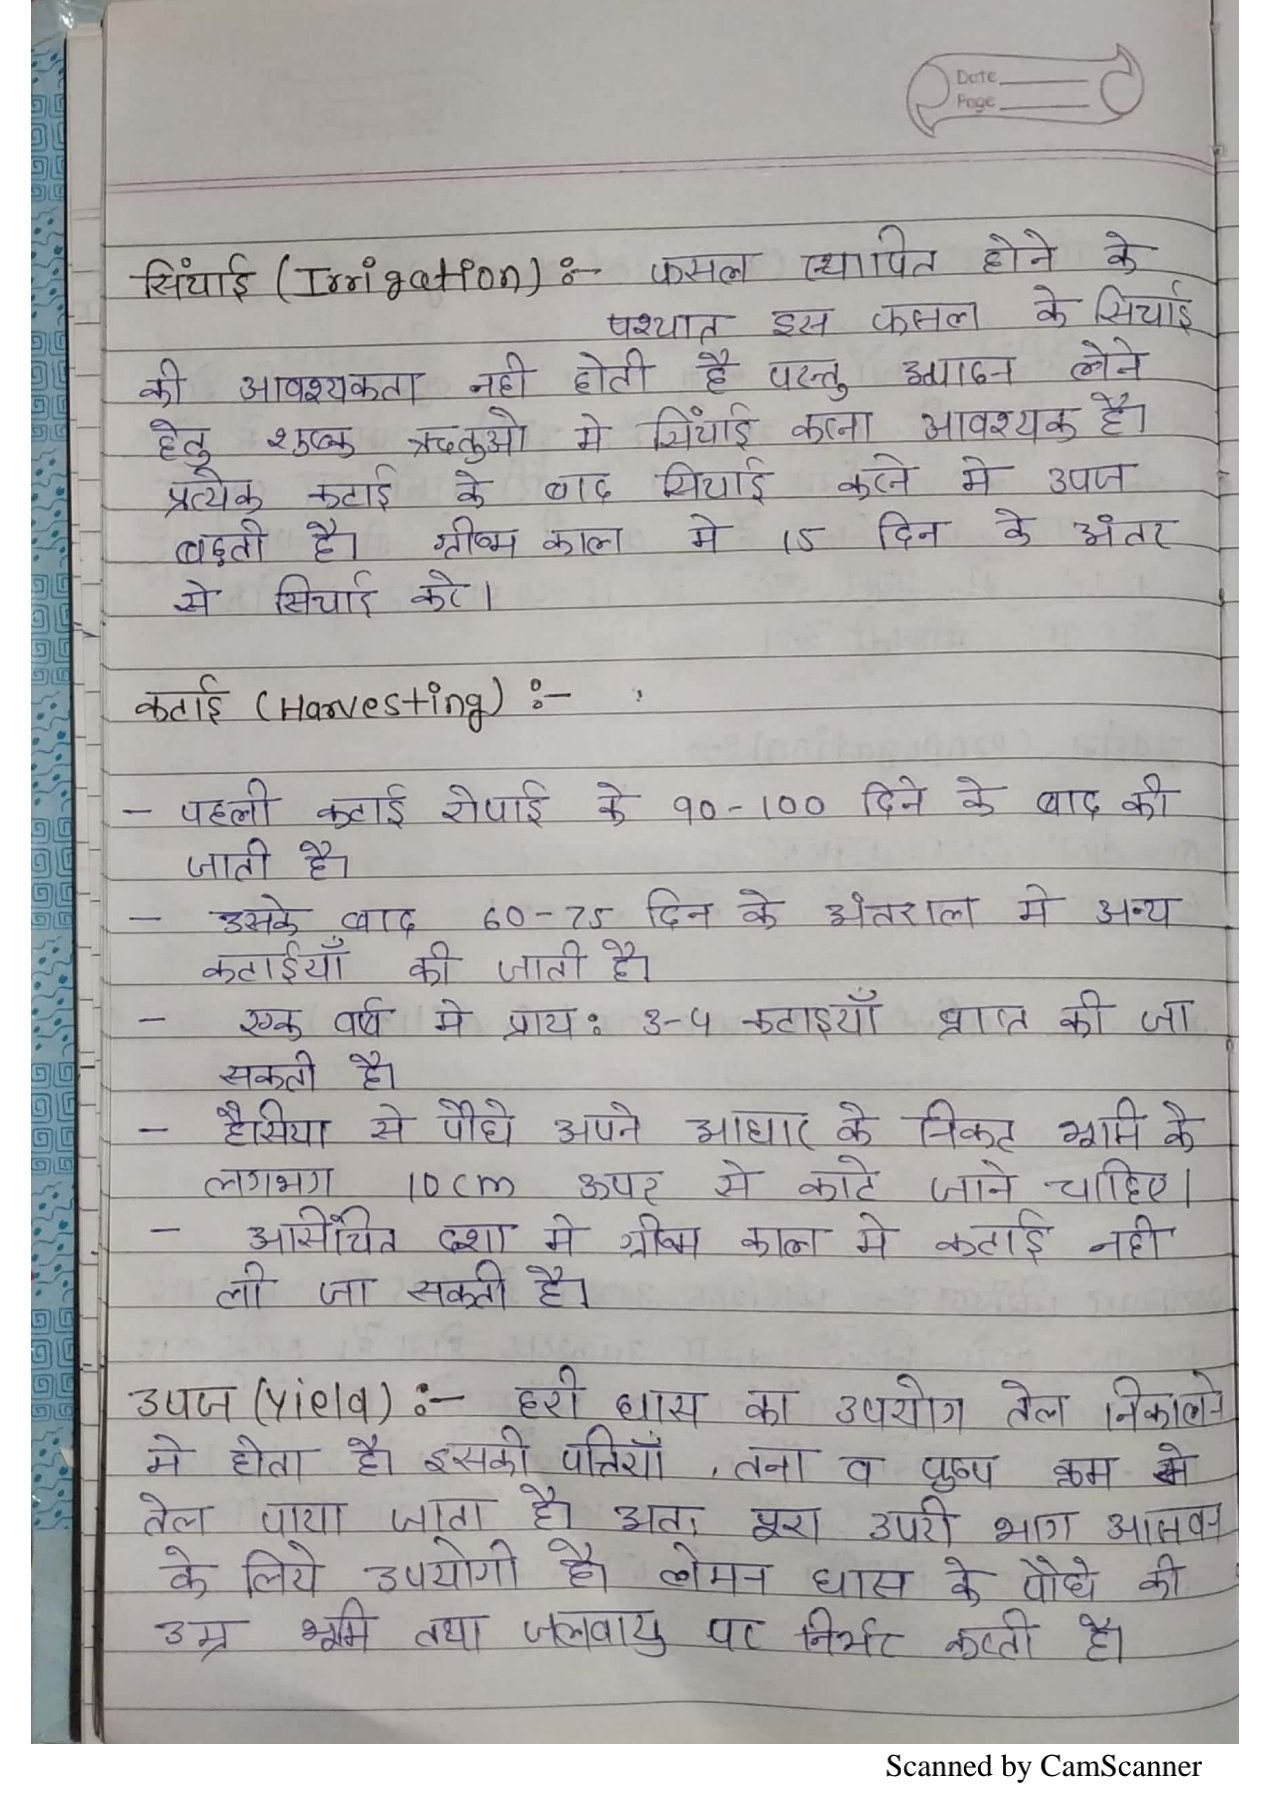 Date
Page
सिंचाई (Irrigation) :- फसल स्थापित होने के
पश्चात इस फसल के सिचाई
की आवश्यकता नही होती है परन्तु उत्पादन लेने
हेतु शुष्क ऋतुओ मे सिंचाई करना आवश्यक है।
प्रत्येक कटाई के बाद सिचाई करने मे उपज
बढ़ती है। ग्रीष्म काल मे 15 दिन के अंतर
से सिचाई करे।
कटाई (Harvesting) :-
- पहली कटाई रोपाई के 90-100 दिने के बाद की
जाती है।
- उसके बाद 60-75 दिन के अंतराल मे अन्य
कटाईयाँ की जाती है।
- एक वर्ष मे प्राय: 3-4 कटाइयाँ प्राप्त की जा
सकती है।
- हैसिया से पौधे अपने आधार के निकट भूमि के
लगभग 10cm ऊपर से काटे जाने चाहिए।
- असिंचित दशा मे ग्रीष्म काल मे कटाई नही
ली जा सकती है।
उपज (Yield) :- हरी घास का उपयोग तेल निकालने
मे होता है। इसकी पत्तियाँ, तना व पुष्प क्रम मे
तेल पाया जाता है। अतः पूरा उपरी भाग आसवन
के लिये उपयोगी है। लेमन घास के पौधे की
उम्र भूमि तथा जलवायु पर निर्भर करती है।
Scanned by CamScanner